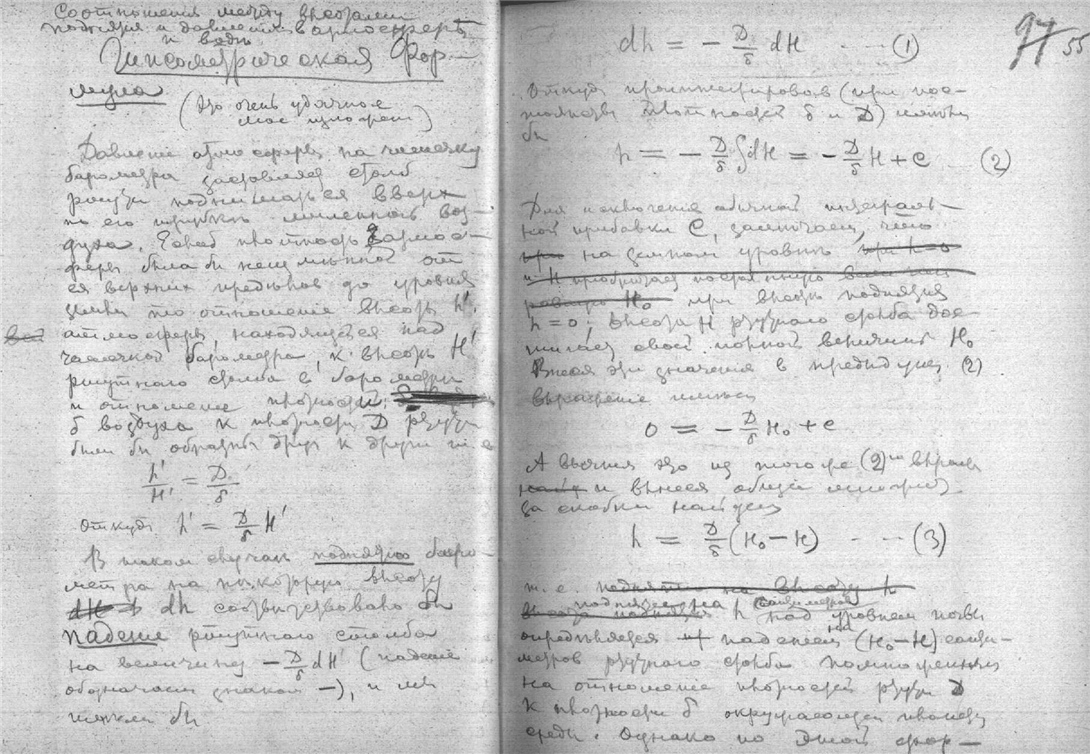 Соотношения между высотами
поднятия и давлением в атмосферѣ
и водѣ
Гипсометрическая фор-
мула
(Это очень удачное
мое изложение)
Давление атмосферы на чашечку
барометра заставляет столб
ртути подниматься вверх
по его трубкѣ лишенной воз-
духа. Если б плотность атмос-
феры была бы неизмѣнной от
ея верхних предѣлов до уровня
земли то отношение высоты h'
атмосферы, находящейся над
чашечкой барометра, к высотѣ H'
ртутного столба в барометрѣ
и отношение плотности
δ воздуха к плотности D ртути
были бы обратны друг к другу т. е
h'/H' = D/δ
Откуда h' = D/δ H'
В таком случаѣ поднятию баро-
метра на нѣкоторую высоту
dh соотвѣтствовало бы
падение ртутного столба
на величину − D/δ dH (падение
обозначаем знаком −), и мы
имѣли бы
97 55
dh = − D/δ dH --- (1)
Откуда проинтегрировав (при пос-
тоянствѣ плотностей δ и D) имѣли
бы
h = − D/δ ∫dH = − D/δ H + C (2)
Для исключения обычной интеграль-
ной прибавки C, замѣчаем, что
на земном уровнѣ
H₀ при высотѣ поднятия
h = 0, высота H ртутного столба дос-
тигает своей полной величины H₀
Внося эти значения в предыдущее (2)
выражение имѣем
0 = − D/δ H₀ + C
А вычтя это из того же (2)
и вынеся общий множитель
за скобки найдем
h = D/δ (H₀ − H) --- (3)
т. е.
поднятие на h сантиметров
над уровнем почвы
опредѣляется падением (H₀ − H) санти-
метров ртутного столба помноженным
на отношение плотности ртути D
к плотности δ окружающей
среды. Однако по этой фор-